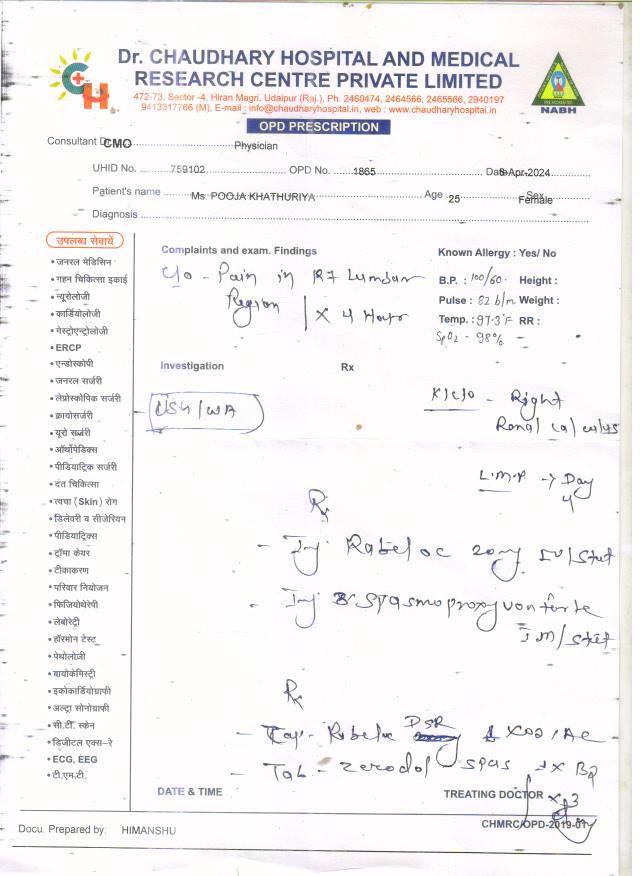 Dr. CHAUDHARY HOSPITAL AND MEDICAL
RESEARCH CENTRE PRIVATE LIMITED
472-73, Sector -4, Hiran Magri, Udaipur (Raj.), Ph. 2460474, 2464566, 2465566, 2940197
9413317766 (M), E-mail : info@chaudharyhospital.in, web : www.chaudharyhospital.in
NABH
OPD PRESCRIPTION
Consultant Dr. CMO Physician
UHID No. 759102 OPD No. 1865 Date 8-Apr-2024
Patient's name Ms. POOJA KHATHURIYA Age 25 Sex Female
Diagnosis
उपलब्ध सेवायें
• जनरल मेडिसिन
• गहन चिकित्सा इकाई
• न्यूरोलॉजी
• कार्डियोलॉजी
• गेस्ट्रोएन्ट्रोलॉजी
• ERCP
• एन्डोस्कोपी
• जनरल सर्जरी
• लेप्रोस्कोपिक सर्जरी
• क्रायोसर्जरी
• यूरो सर्जरी
• ऑर्थोपेडिक्स
• पीडियाट्रिक सर्जरी
• दंत चिकित्सा
• त्वचा (Skin) रोग
• डिलेवरी व सीजेरियन
• पीडियाट्रिक्स
• ट्रॉमा केयर
• टीकाकरण
• परिवार नियोजन
• फिजियोथेरेपी
• लेबोरेट्री
• हॉरमोन टेस्ट
• पेथोलॉजी
• बायोकेमिस्ट्री
• इकोकार्डियोग्राफी
• अल्ट्रा सोनोग्राफी
• सी.टी. स्केन
• डिजीटल एक्स-रे
• ECG, EEG
• टी.एम.टी.
Complaints and exam. Findings
C/o - Pain in RT Lumbar
Region | x 4 Hour
Known Allergy : Yes/ No
B.P. : 100/60 Height:
Pulse : 82 b/m Weight:
Temp. : 97.3°F RR :
SpO2 - 98%
Investigation Rx
USG/WA
K/C/O - Right
Renal calculus
L.M.P → Day
4
Rx
- Inj Rabeloc 20mg IV/stat
- Inj spasmoproxyvon forte
IM/stat
Rx
- Cap. Rabeloc DSR 1 x OD/AC
- Tab - Zerodol spas 1 x BD
x 3
DATE & TIME TREATING DOCTOR
CHMRC/OPD-2019-01
Docu. Prepared by: HIMANSHU